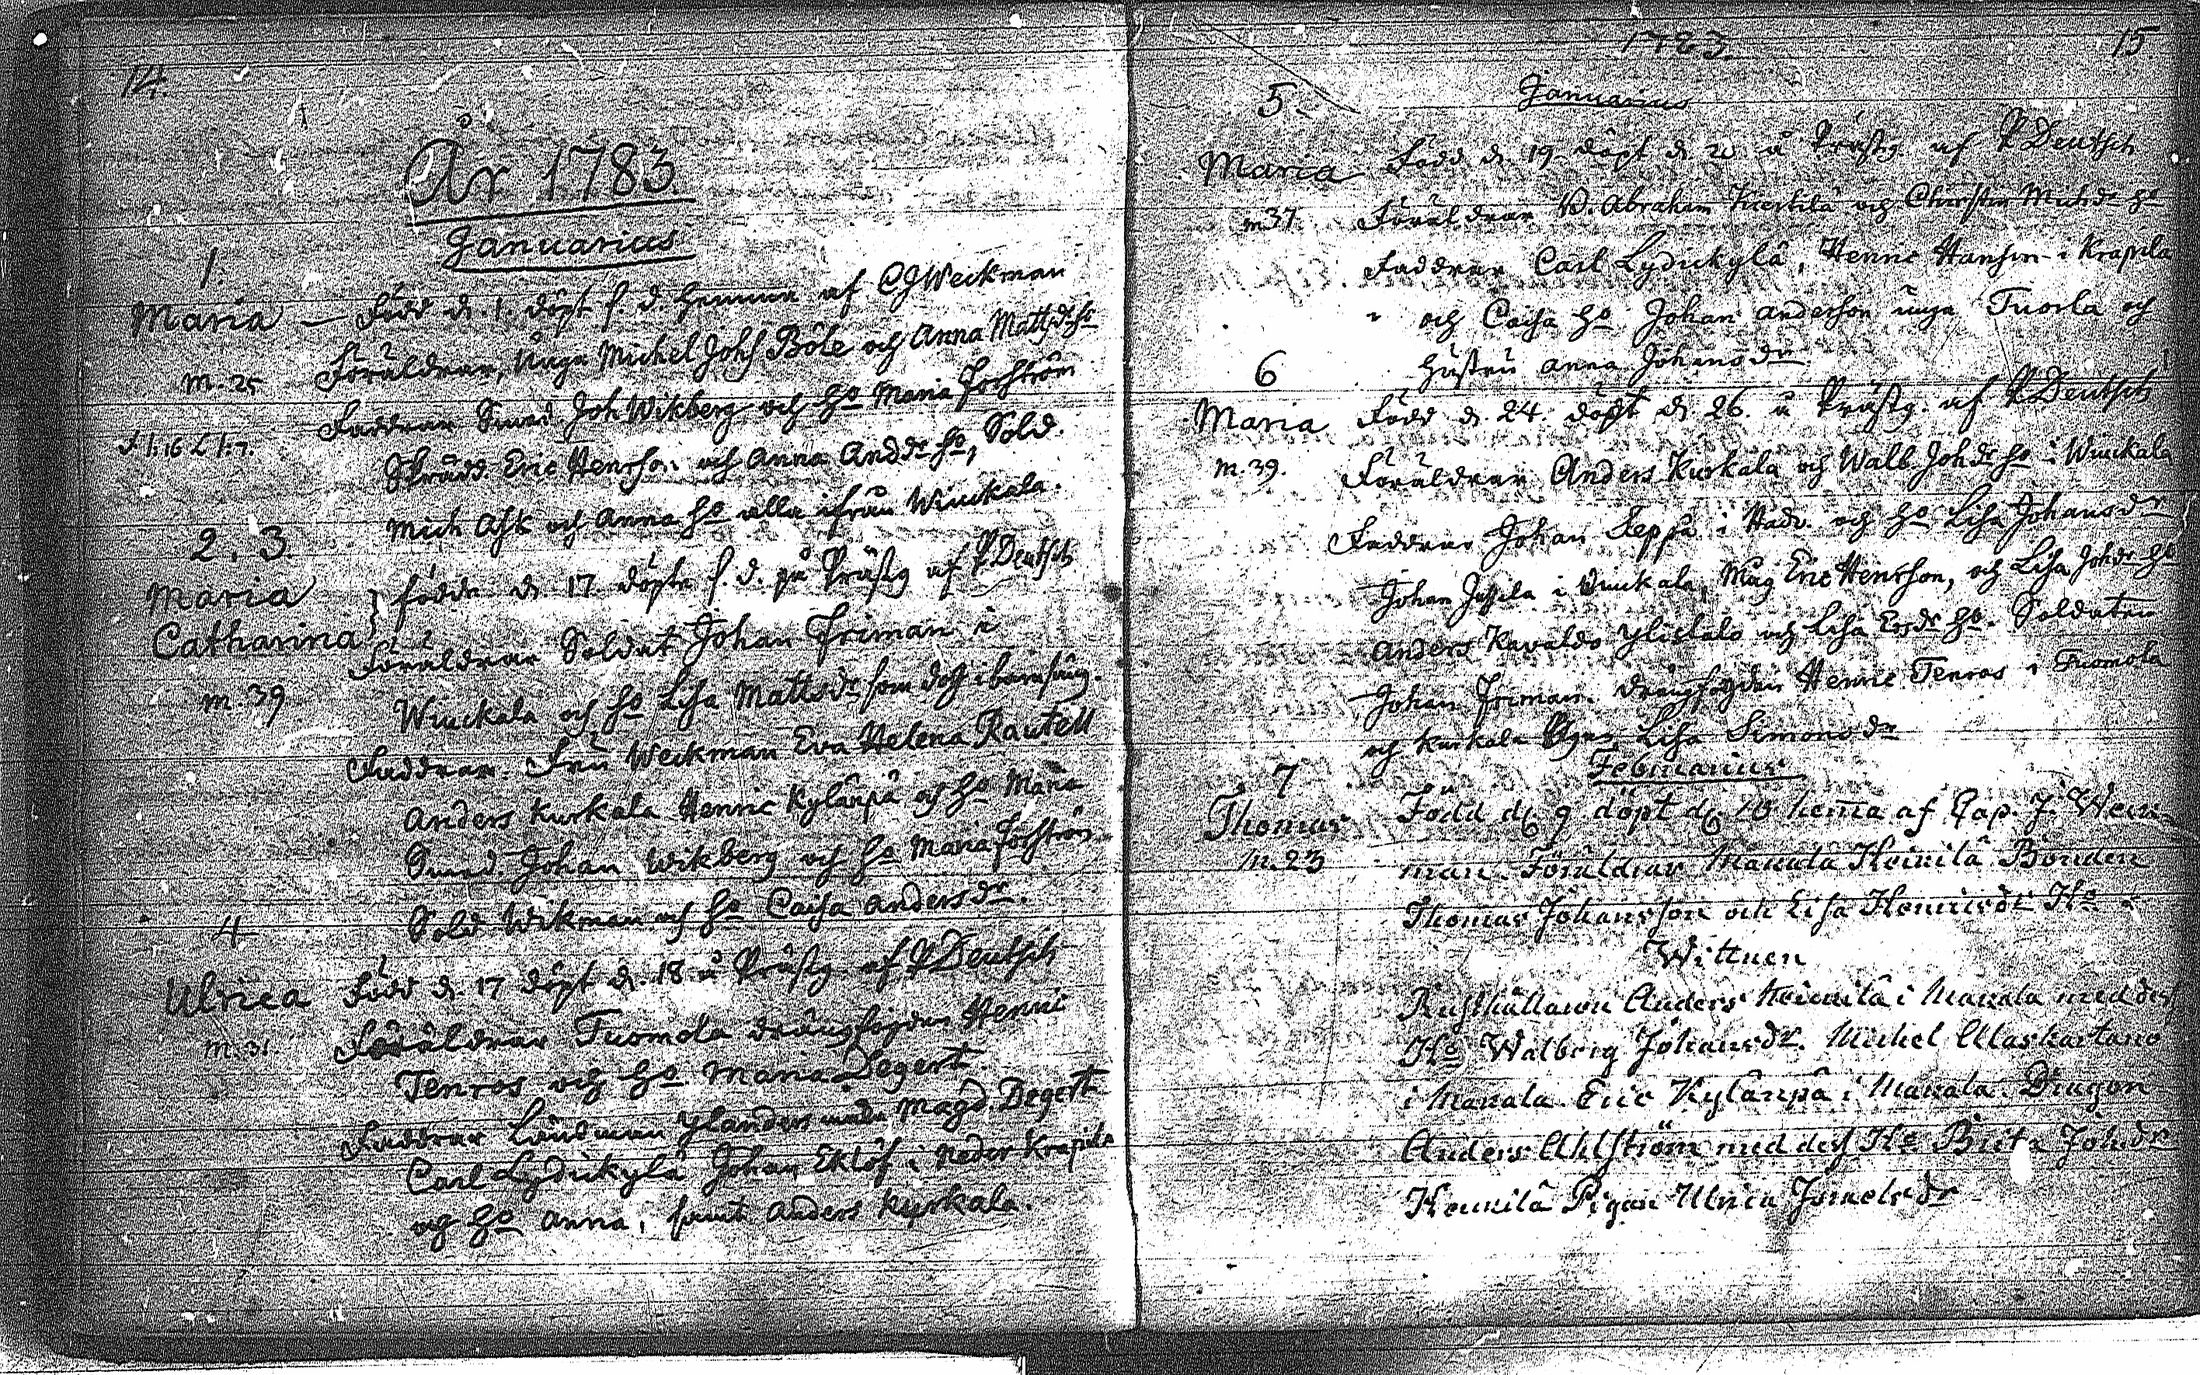 14.
År 1783.
Januarius.
1.
Maria — Född d. 1. döpt s. d. hemma af CJ Weckman
Föräldrar, Unga Michel Johss Böle och Anna Mattsdr ho
m. 25
Faddrar Smed. Joh Wikberg och ho Maria Forsström
Skrädd. Eric Henrson och Anna Anddr ho, Sold.
Mich Ask och Anna ho alla ifrån Winckala.
2. 3
Maria
Catharina
födde d 17 döpte s. d. på Prästg af P Deutsch
Föräldrar Soldat Johan Friman i
m. 39
Winckala och ho Lisa Mattsdr som dog i barnsäng.
Faddrar. Fru Weckman Eva Helena Rautell
Anders Kurkala Henric Kylänpä och ho Maria
Smed. Johan Wikberg och ho Maria Forström
Sold Wikman och ho Caisa Andersdr.
4
Ulrica Född d. 17 döpt d. 18 å Prästg af P Deutsch
m. 31.
Föräldrar Tuomola drängfogden Henric
Tenros och ho. Maria Degert
Faddrar Länsman Ylanders Magd. Degert
Carl Lydickylä Johan Eklöf i Neder Krapila
och ho Anna, samt Anders Kyrkala.
1783.
15
Januarius
5
Maria Född d. 19. döpt d. 20 å Prästg. af P Deutsch
m 37.
Föräldrar B. Abraham och Christin Michdr ho
Faddrar Carl Lydickylä, Henric Hansson i Krapila
och Caisa ho Johan Anderson unga Tuorla och
hustru Anna Johansdr
6
Maria Född d. 24. döpt d 26. å Prästg. af P Deutsch
m. 39.
Föräldrar Anders Kurkala och Walb. Johdr ho i Winckala
Faddrar Johan Seppä i och ho Lisa Johansdr
Johan i Winckala, Eric Henrson, och Lisa Johdr ho
Anders och Lisa Ersdr ho. Soldaten
Johan Friman. drängfogden Henric Tenros i Tuomola
och Kurkala Lisa Simonsdr
Februarius
7
Thomas
m. 23
Född d. 9 döpt d. 10 hema af Cap. J. Weck-
man. Föräldrar Manala Heikkilä Bonden
Thomas Johansson och Lisa Henricsdr Ho
Wittnen
Rusthållaren Anders Heikkilä i Manala med dess
Ho Walborg Johansdr. Michel Alaskartano
i Manala. Eric Kylänpä i Manala. Dragon
Anders Ahlström med dess Ho Brita Joh.dr
Heikkilä Pigan Ulrica Israelsdr